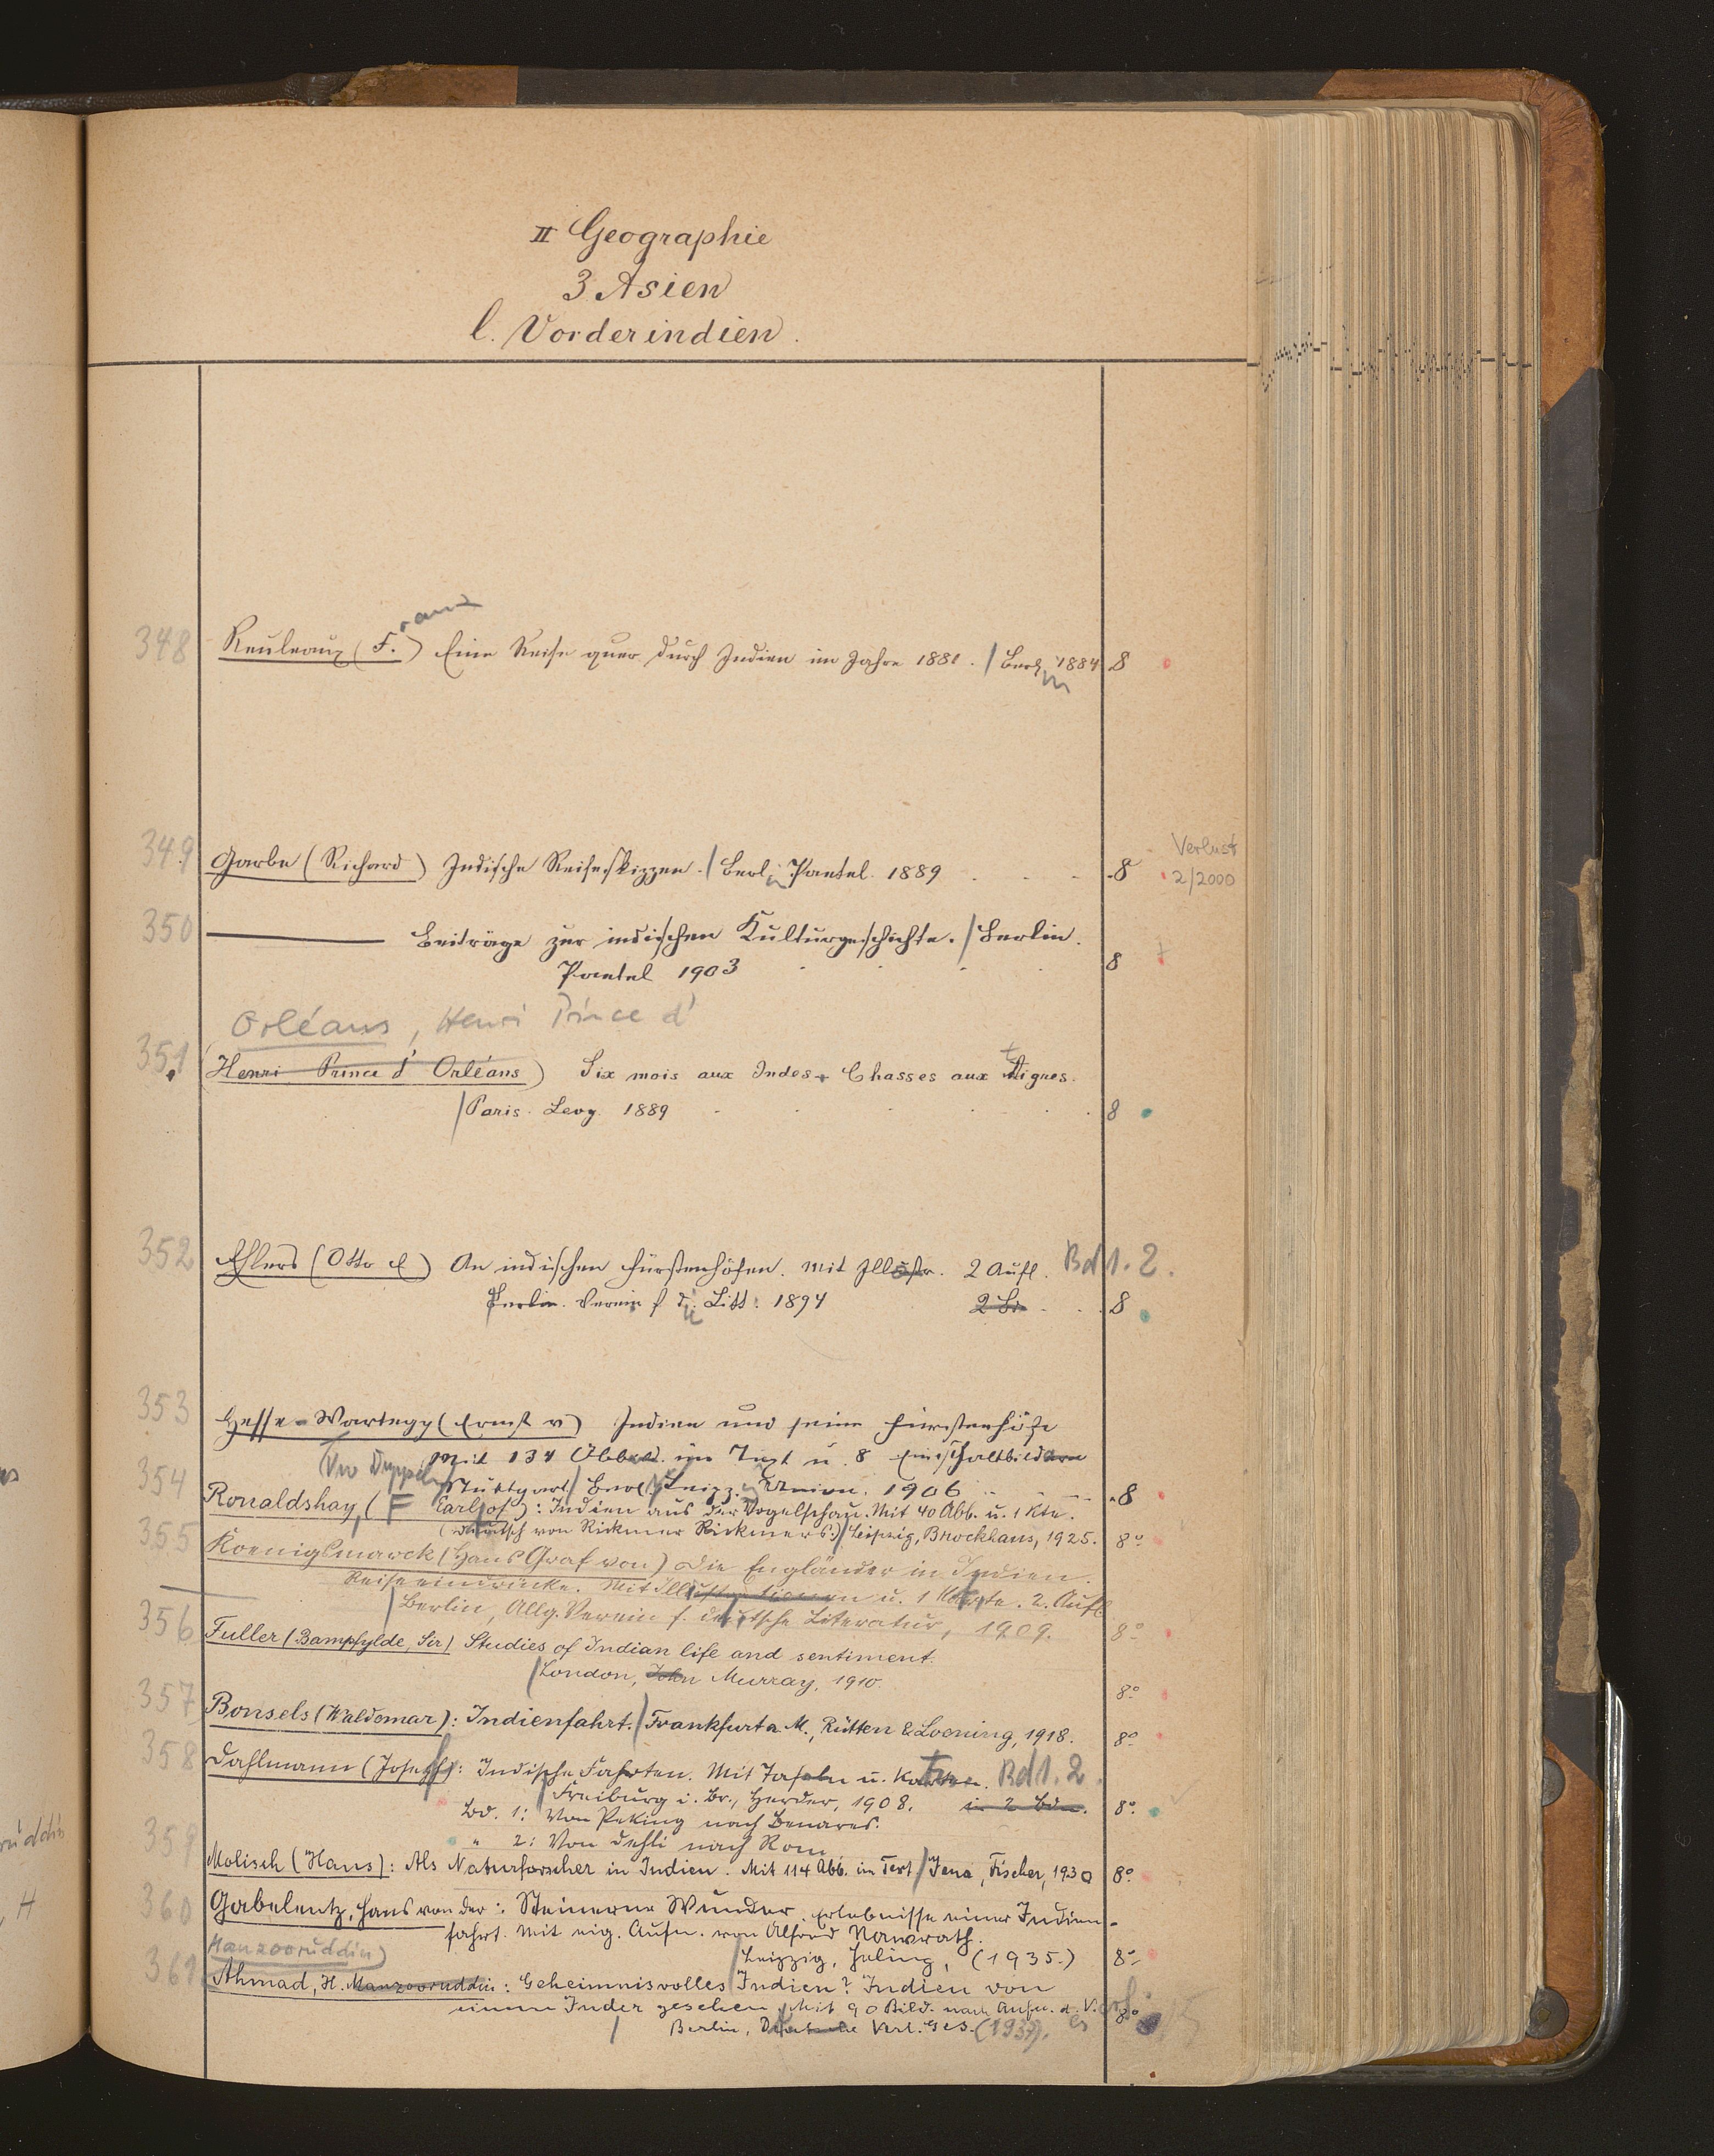 II Geographie
3 Asien
l. Vorderindien.
ranz
348 Reuleaux (F.) Eine Reise quer durch Indien im Jahre 1881. / Berl 1884 8
in
Verlust
349 Garbe (Richard) Indische Reiseskizzen. / Berlin Paetel. 1889 8 2/2000
350 ——— Beiträge zur indischen Kulturgeschichte. / Berlin.
Paetel 1903 8 +
Orléans, Henri Prince d'
351 (Henri Prince d'Orléans) Six mois aux Indes. Chasses aux tigres.
/ Paris. Levy 1889 8
352 Ehlers (Otto E) An indischen Fürstenhöfen. Mit Illustr. 2 Aufl. Bd 1. 2.
Berlin. Verein f d. Litt. 1894 2 Bde 8
353 Hesse-Wartegg (Ernst v) Indien und seine Fürstenhöfe
Mit 134 Abbild. im Text u. 8 Einschaltbildern
Stuttgart / Berl. Leipz. Union. 1906 8
354 Ronaldshay, (F Earl of): Indien aus der Vogelschau. Mit 40 Abb. u. 1 Kte.
(Deutsch von Rickmer Rickmers.) / Leipzig, Brockhaus, 1925. 8°
355 Koenigsmarck (Hans Graf von) Die Engländer in Indien.
Reiseeindrücke. Mit Illustrationen u. 1 Karte. 2. Aufl
/ Berlin, Allg. Verein f. deutsche Literatur, 1909. 8°
356 Fuller (Bampfylde, Sir) Studies of Indian life and sentiment.
/ London, John Murray, 1910. 8°
357 Bonsels (Waldemar): Indienfahrt. / Frankfurt a. M., Rütten & Loening, 1918. 8°
358 Dahlmann (Joseph): Indische Fahrten. Mit Tafeln u. Karten. Bd 1. 2.
/ Freiburg i. Br., Herder, 1908. in 2 Bdn. 8°
Bd. 1: Von Peking nach Benares.
" 2: Von Dehli nach Rom
359 Molisch (Hans): Als Naturforscher in Indien. Mit 114 Abb. im Text / Jena, Fischer, 1930 8°
360 Gabelentz, Hans von der: Steinerne Wunder. Erlebnisse einer Indien-
fahrt. Mit eig. Aufn. von Alfred Nawrath.
/ Leipzig, Huling, (1935.) 8°
Manzooruddin)
361 Ahmad, H. Manzooruddin: Geheimnisvolles Indien? Indien von
einem Inder gesehen. Mit 90 Bild. nach Aufn. d. V. 8°
/ Berlin, Deutsche Verl. Ges. (1937).